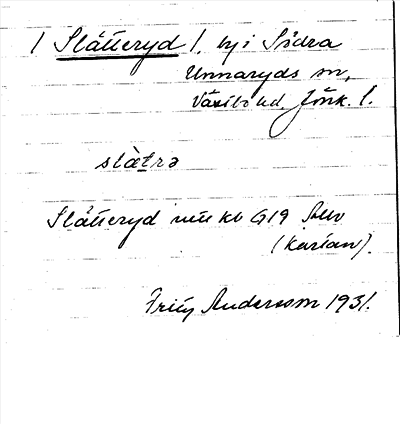 / Slätteryd /. by i Södra
Unnaryds sn,
Västbo hd. Jönk. l.
slàt̠rə
Slätteryd
G 19
(kartan).
Fritz Andersson 1931.